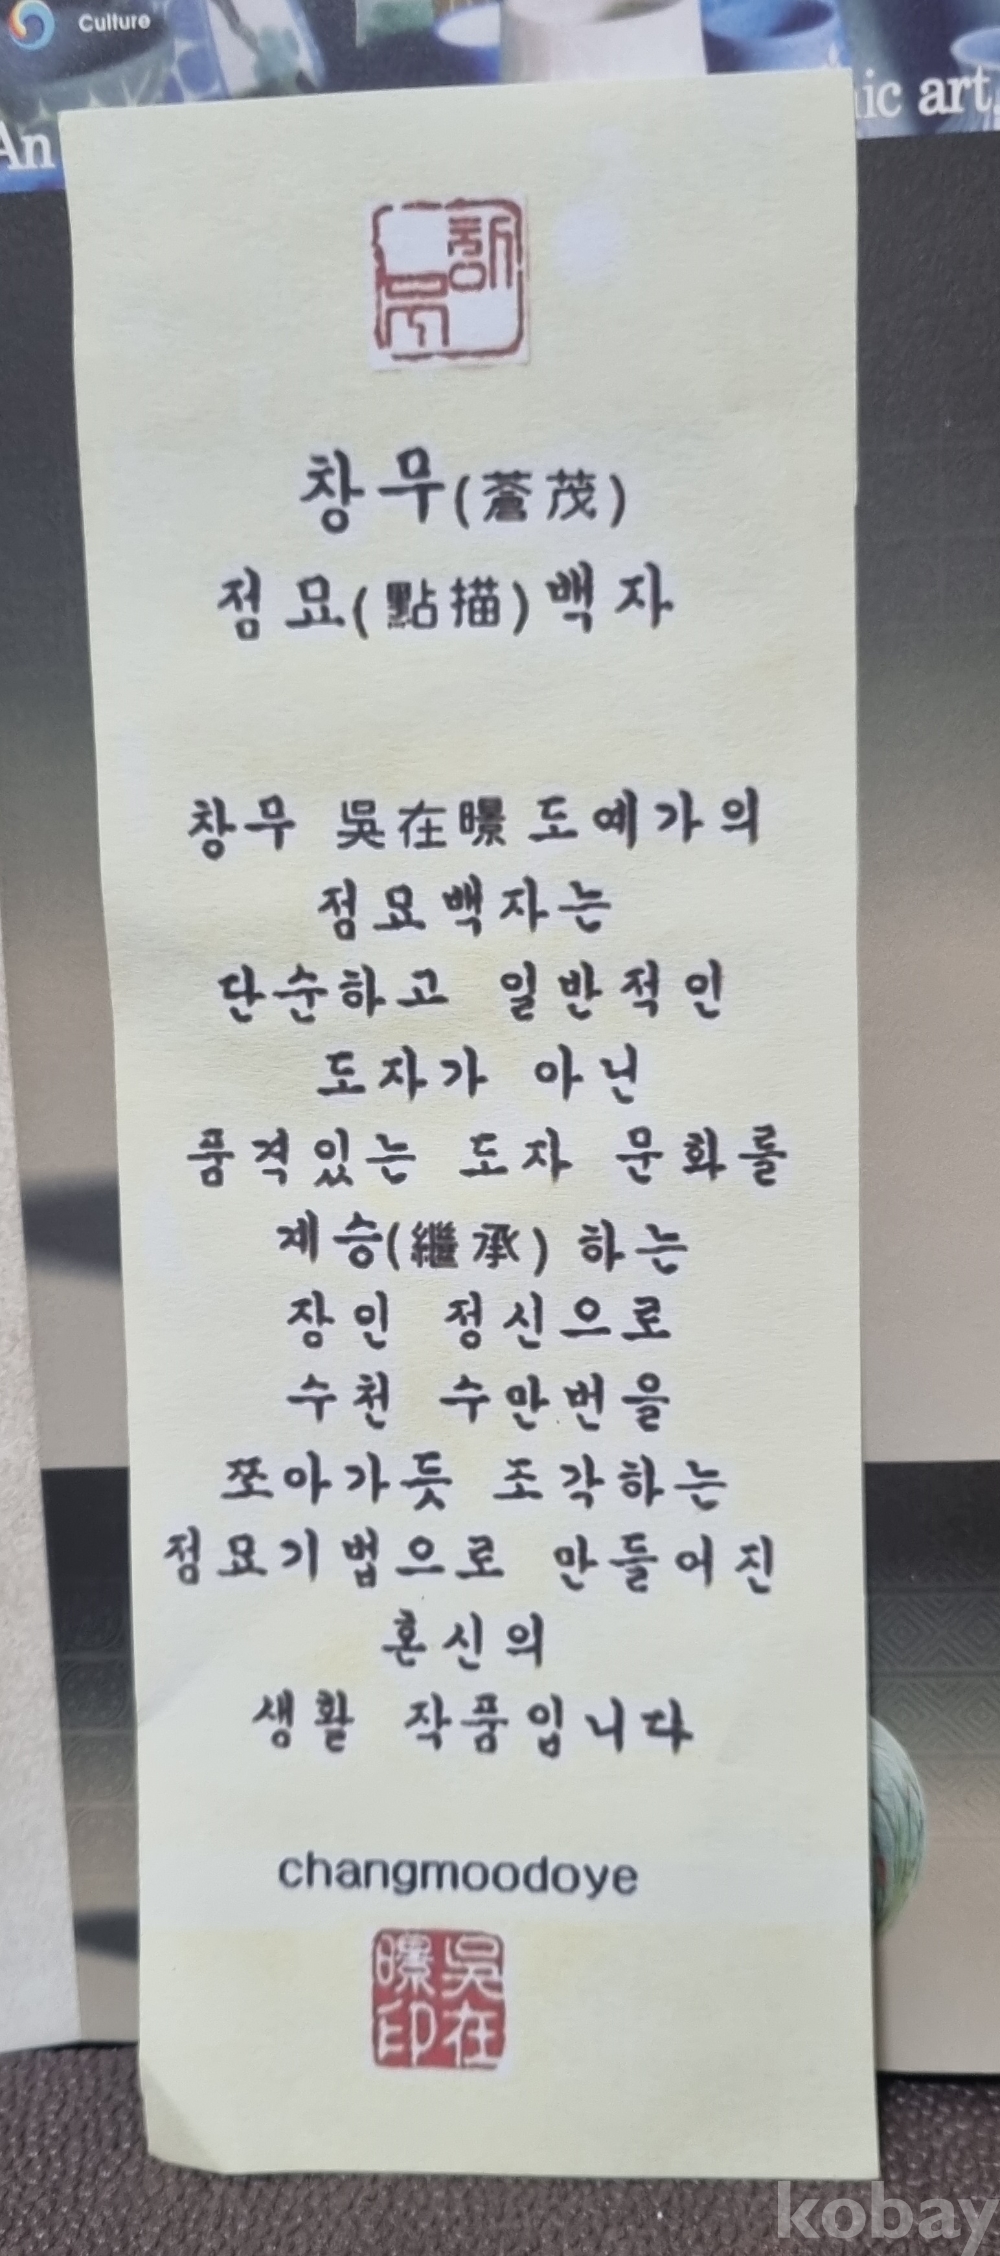 Culture
An
ic art
창무(蒼茂)
점묘(點描)백자
창무 吳在曝 도예가의
점묘백자는
단순하고 일반적인
도자가 아닌
품격있는 도자 문화를
계승(繼承) 하는
장인 정신으로
수천 수만번을
쪼아가듯 조각하는
점묘기법으로 만들어진
혼신의
생활 작품입니다
changmoodoye
吳在
曝印
kobay